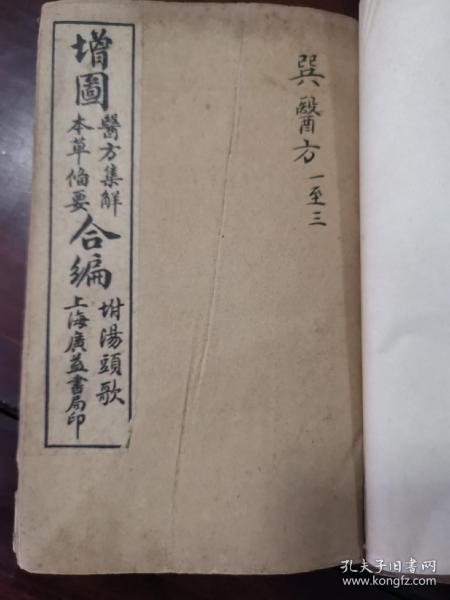 巽 醫方 一至三
增圖
醫方集解
本草俻要
合編
坿湯頭歌
上海廣益書局印
孔夫子旧书网
www.kongfz.com